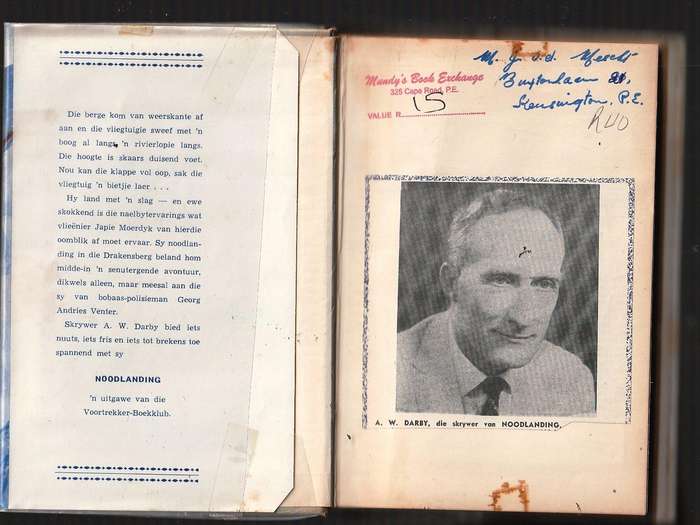 Die berge kom van weerskante af
aan en die vliegtuigie sweef met 'n
boog al langs 'n rivierlopie langs.
Die hoogte is skaars duisend voet.
Nou kan die klappe vol oop, sak die
vliegtuig 'n bietjie laer . . .
Hy land met 'n slag — en ewe
skokkend is die naelbytervarings wat
vlieënier Japie Moerdyk van hierdie
oomblik af moet ervaar. Sy noodlan-
ding in die Drakensberg beland hom
midde-in 'n senutergende avontuur,
dikwels alleen, maar meesal aan die
sy van bobaas-polisieman Georg
Andries Venter.
Skrywer A. W. Darby bied iets
nuuts, iets fris en iets tot brekens toe
spannend met sy
NOODLANDING
'n uitgawe van die
Voortrekker-Boekklub.
M. J. v.d.
Kensington, P.E.
Mundy's Book Exchange
325 Cape Road, P.E.
VALUE R 15
A. W. DARBY, die skrywer van NOODLANDING.